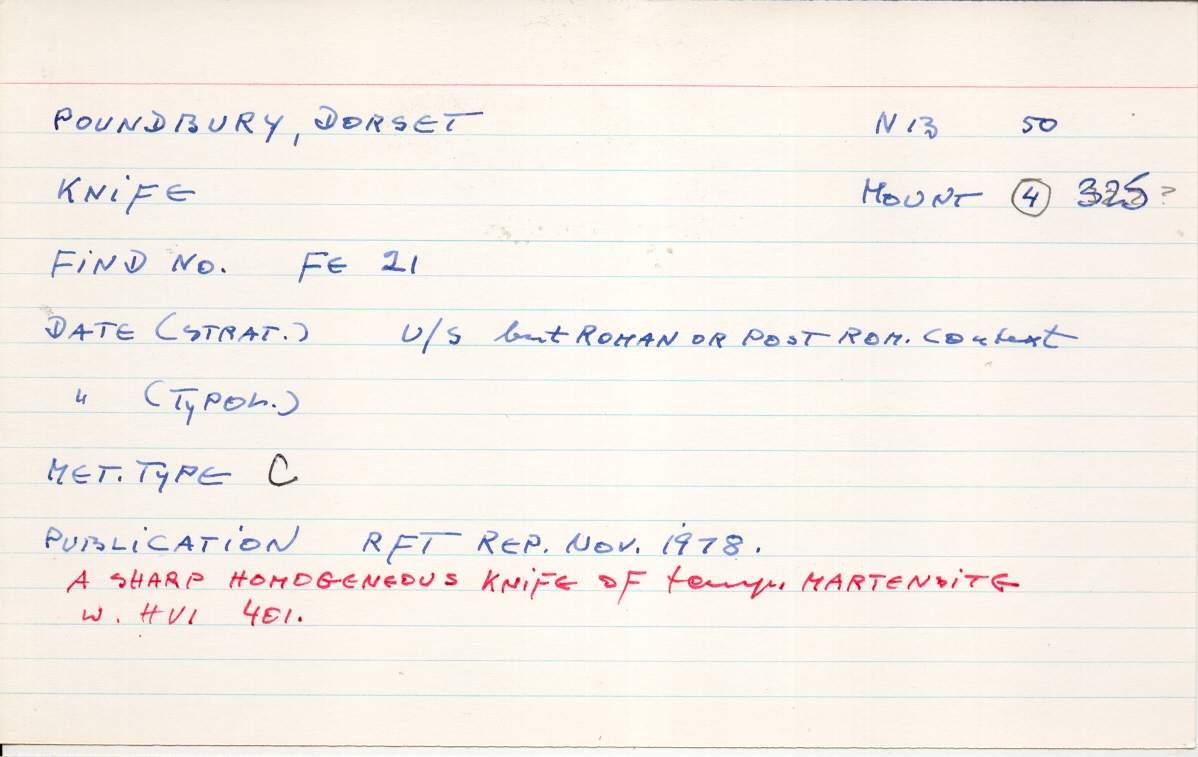 POUNDBURY, DORSET N13 50
KNIFE MOUNT 4 325?
FIND NO. FE 21
DATE (STRAT.) U/S but ROMAN OR POST ROM. Context
" (TYPOL.)
MET. TYPE C
PUBLICATION RFT REP. NOV. 1978.
A SHARP HOMOGENEOUS KNIFE OF temp. MARTENSITE
W. HV1